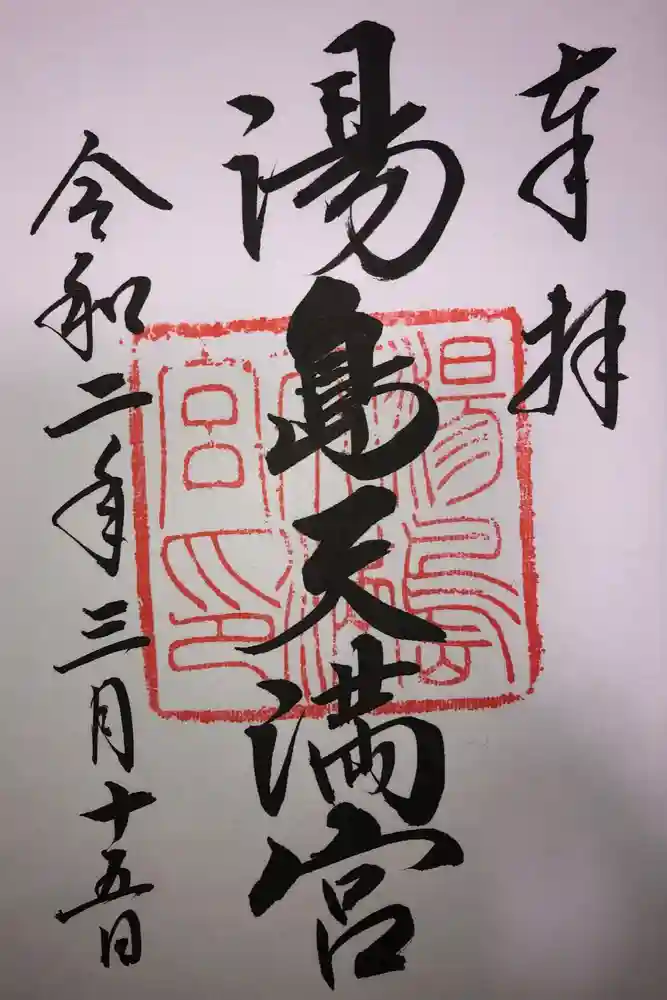 奉拝
湯島天満宮
湯島天満宮印
令和二年三月十五日